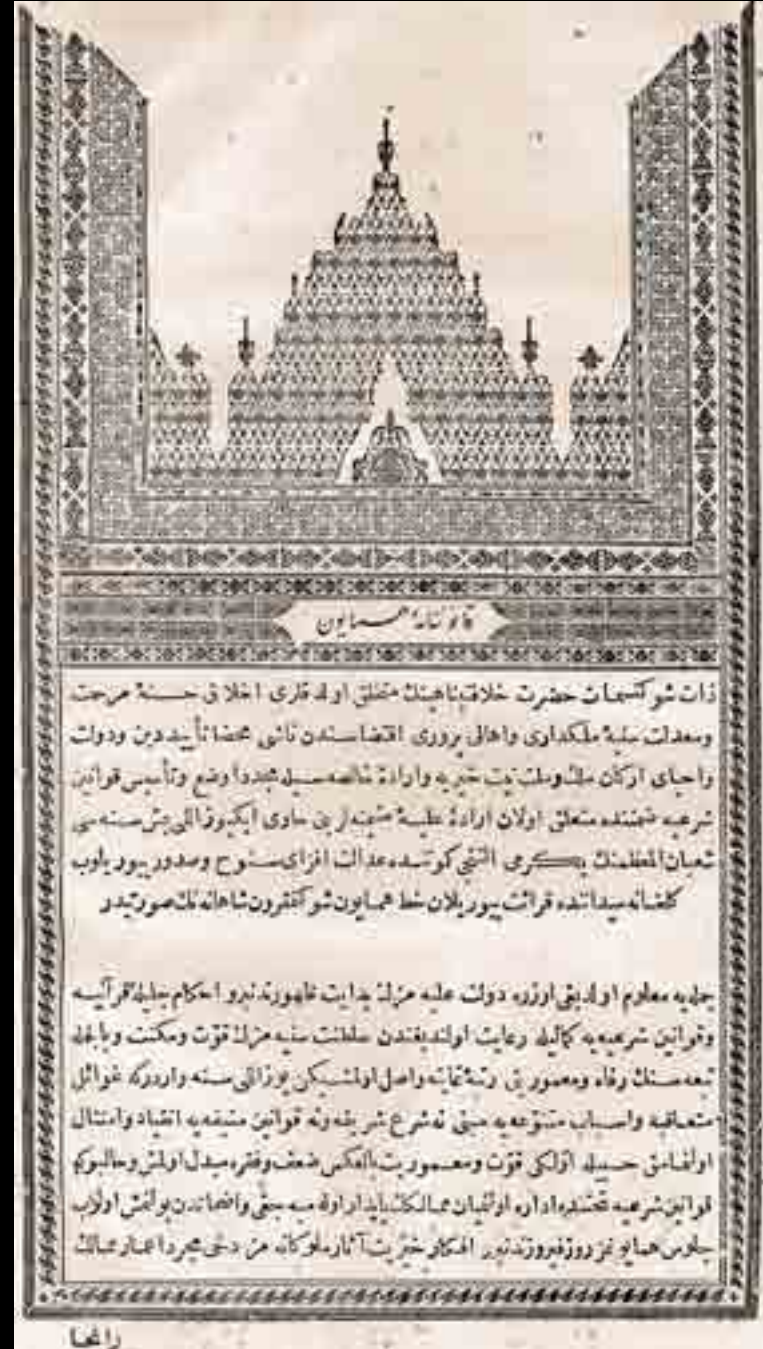 قانوننامهٔ همايون
ذات شوكتسمات حضرت خلافتپناهينك متخلق اولدقلرى اخلاق حسنهٔ مرحمت
ومعدلت سنيهٔ ملكدارى واهالى پرورى اقتضاسندن ناشى محضا تأييد دين ودولت
واحياى اركان ملك وملت نيت خيريه وارادهٔ خالصه سيله مجددا وضع وتأسيس قوانين
شرعيه ضمننده متعلق اولان ارادهٔ عليهٔ حاوى ايكيوز اللى بش سنه سى
شعبان المعظمنك يكرمى التنجى كوننده عدالت افزاى سنوح وصدور بيوريلوب
كلخانه ميداننده قرائت بيوريلان خط همايون شوكتمقرون شاهانه نك صورتيدر
جمله يه معلوم اولديغى اوزره دولت عليه مزك بدايت ظهورندنبرو احكام جليلهٔ قرآنيه
وقوانين شرعيه يه كماليله رعايت اولنديغندن سلطنت سنيه مزك قوت ومكنت وبالجمله
تبعه سنك رفاه ومعموريتى رتبهٔ غايته واصل اولمشيكن يوز اللى سنه واردركه غوائل
متعاقبه واسباب متنوعه يه مبنى نه شرع شريفه ونه قوانين منيفه يه انقياد وامتثال
اولنمامق حسبيله اولكى قوت ومعموريت بالعكس ضعف وفقره مبدل اولمش وحالبوكه
قوانين شرعيه تحتنده اداره اولنميان ممالكك پايدار اوله ميه جغى واضحاتدن بولنمش اولوب
جلوس همايونمز روز فيروزندنبرو افكار خيريت آثار ملوكانه مز دخى مجرد اعمار ممالك